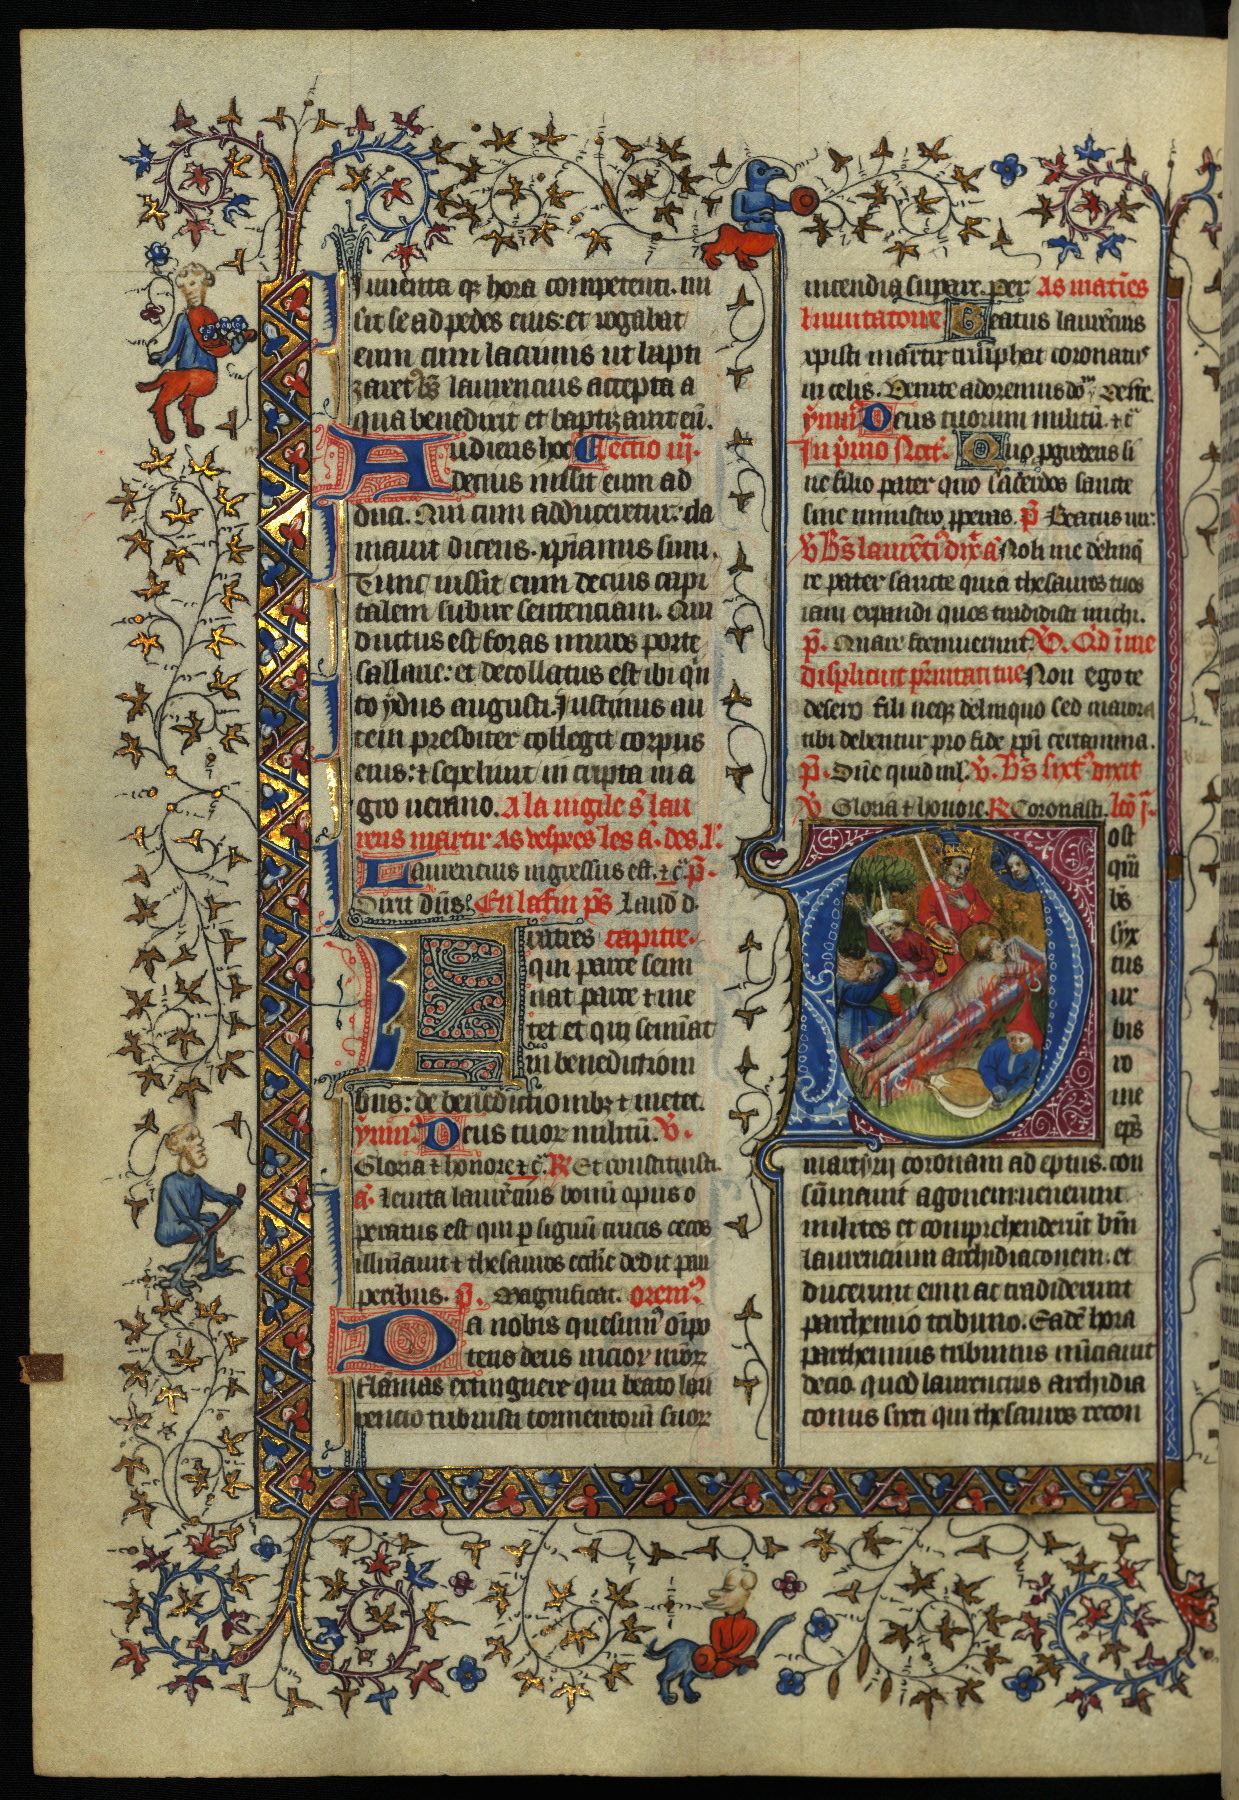 Inuenta q̄ hora competenti. mi
sit se ad pedes eius: et rogabat
eum cum lacrimis ut bapti
zaret᷑. Bs̄ laurencius accepta a
qua benedixit et baptizauit eū.
Audiens hoc Lectio iij.
decius misit eum ad
duci. Qui cum adduceretur: cla
mauit dicens. xp̄ianus sum.
Tunc iussit eum decius capi
talem subire sentenciam. Qui
ductus est foras muros porte
sallarie: et decollatus est ibi qn̄
to ydus augusti. Justinus au
tem presbiter collegit corpus
eius: ⁊ sepeliuit in cripta in a
gro uerano. A la uigile s̄ lau
rens martir. As vespres les ā. des. l'.
Laurencius ingressus est. ⁊c̄. p̄.
Dixit dn̄s. En la fin ps̄ Laud d.
Fratres capitle.
qui parce semi
nat parce ⁊ me
tet et qui semīat
in benediction
ibus: de benedictionibꝫ ⁊ metet.
ymn̄. Deus tuor militū. v̄.
Gloria ⁊ honore ⁊c̄. R̄ Et constituisti.
ā. Leuita laurēcius bonū opus o
peratus est qui p signū crucis cecos
illuīauit ⁊ thesauros eccl̄ie dedit pau
peribus. p̄. Magnificat. orem᷑.
Da nobis quesum᷑ oīpo
tens deus uicior nr̄oꝝ
flamas extinguere qui beato lau
rencio tribuisti tormentorū suoꝝ
incendia supare. per. As matīes
Inuitatoire Beatus laurēcius
xpisti martir triūphat coronatus
in celis. Venite adoremus dōm̄. Venite.
ymn̄ Deus tuorum militū. ⁊c̄
In p̄mo Noct᷑. Quo pgrederis si
ne filio pater quo sacerdos sancte
sine ministro pperas. p̄ Beatus uir.
v̄ Bs̄ laurēti᷑ dix̄ ā Noli me delinq̄
re pater sancte quia thesauros tuos
iam expandi quos tradidisti michi.
p̄. Quare fremuerunt. v̄. Qd̄ ī me
displicuit p̄nitati tue Non ego te
desero fili neqꝫ delinquo sed maiora
tibi debentur pro fide xp̄i certamina.
p̄. Dn̄e quid ml̄. v̄. Bs̄ sixt᷑ dixit
v̄. Gloria ⁊ honore. R̄ Coronasti. lcō j.
Post
quā
bs̄
syx
tus
ur
bis
ro
me
ep̄s
martyrij coronam adeptus. con
sūmauit agonem: uenerunt
milites et comprehenderūt bm̄
laurencium archidiaconem: et
duxerunt eum ac tradiderunt
parthenio tribuno. Eadē hora
parthenius tribunus nūciauit
decio. quod laurencius archidia
conus sixti qui thesauros recon